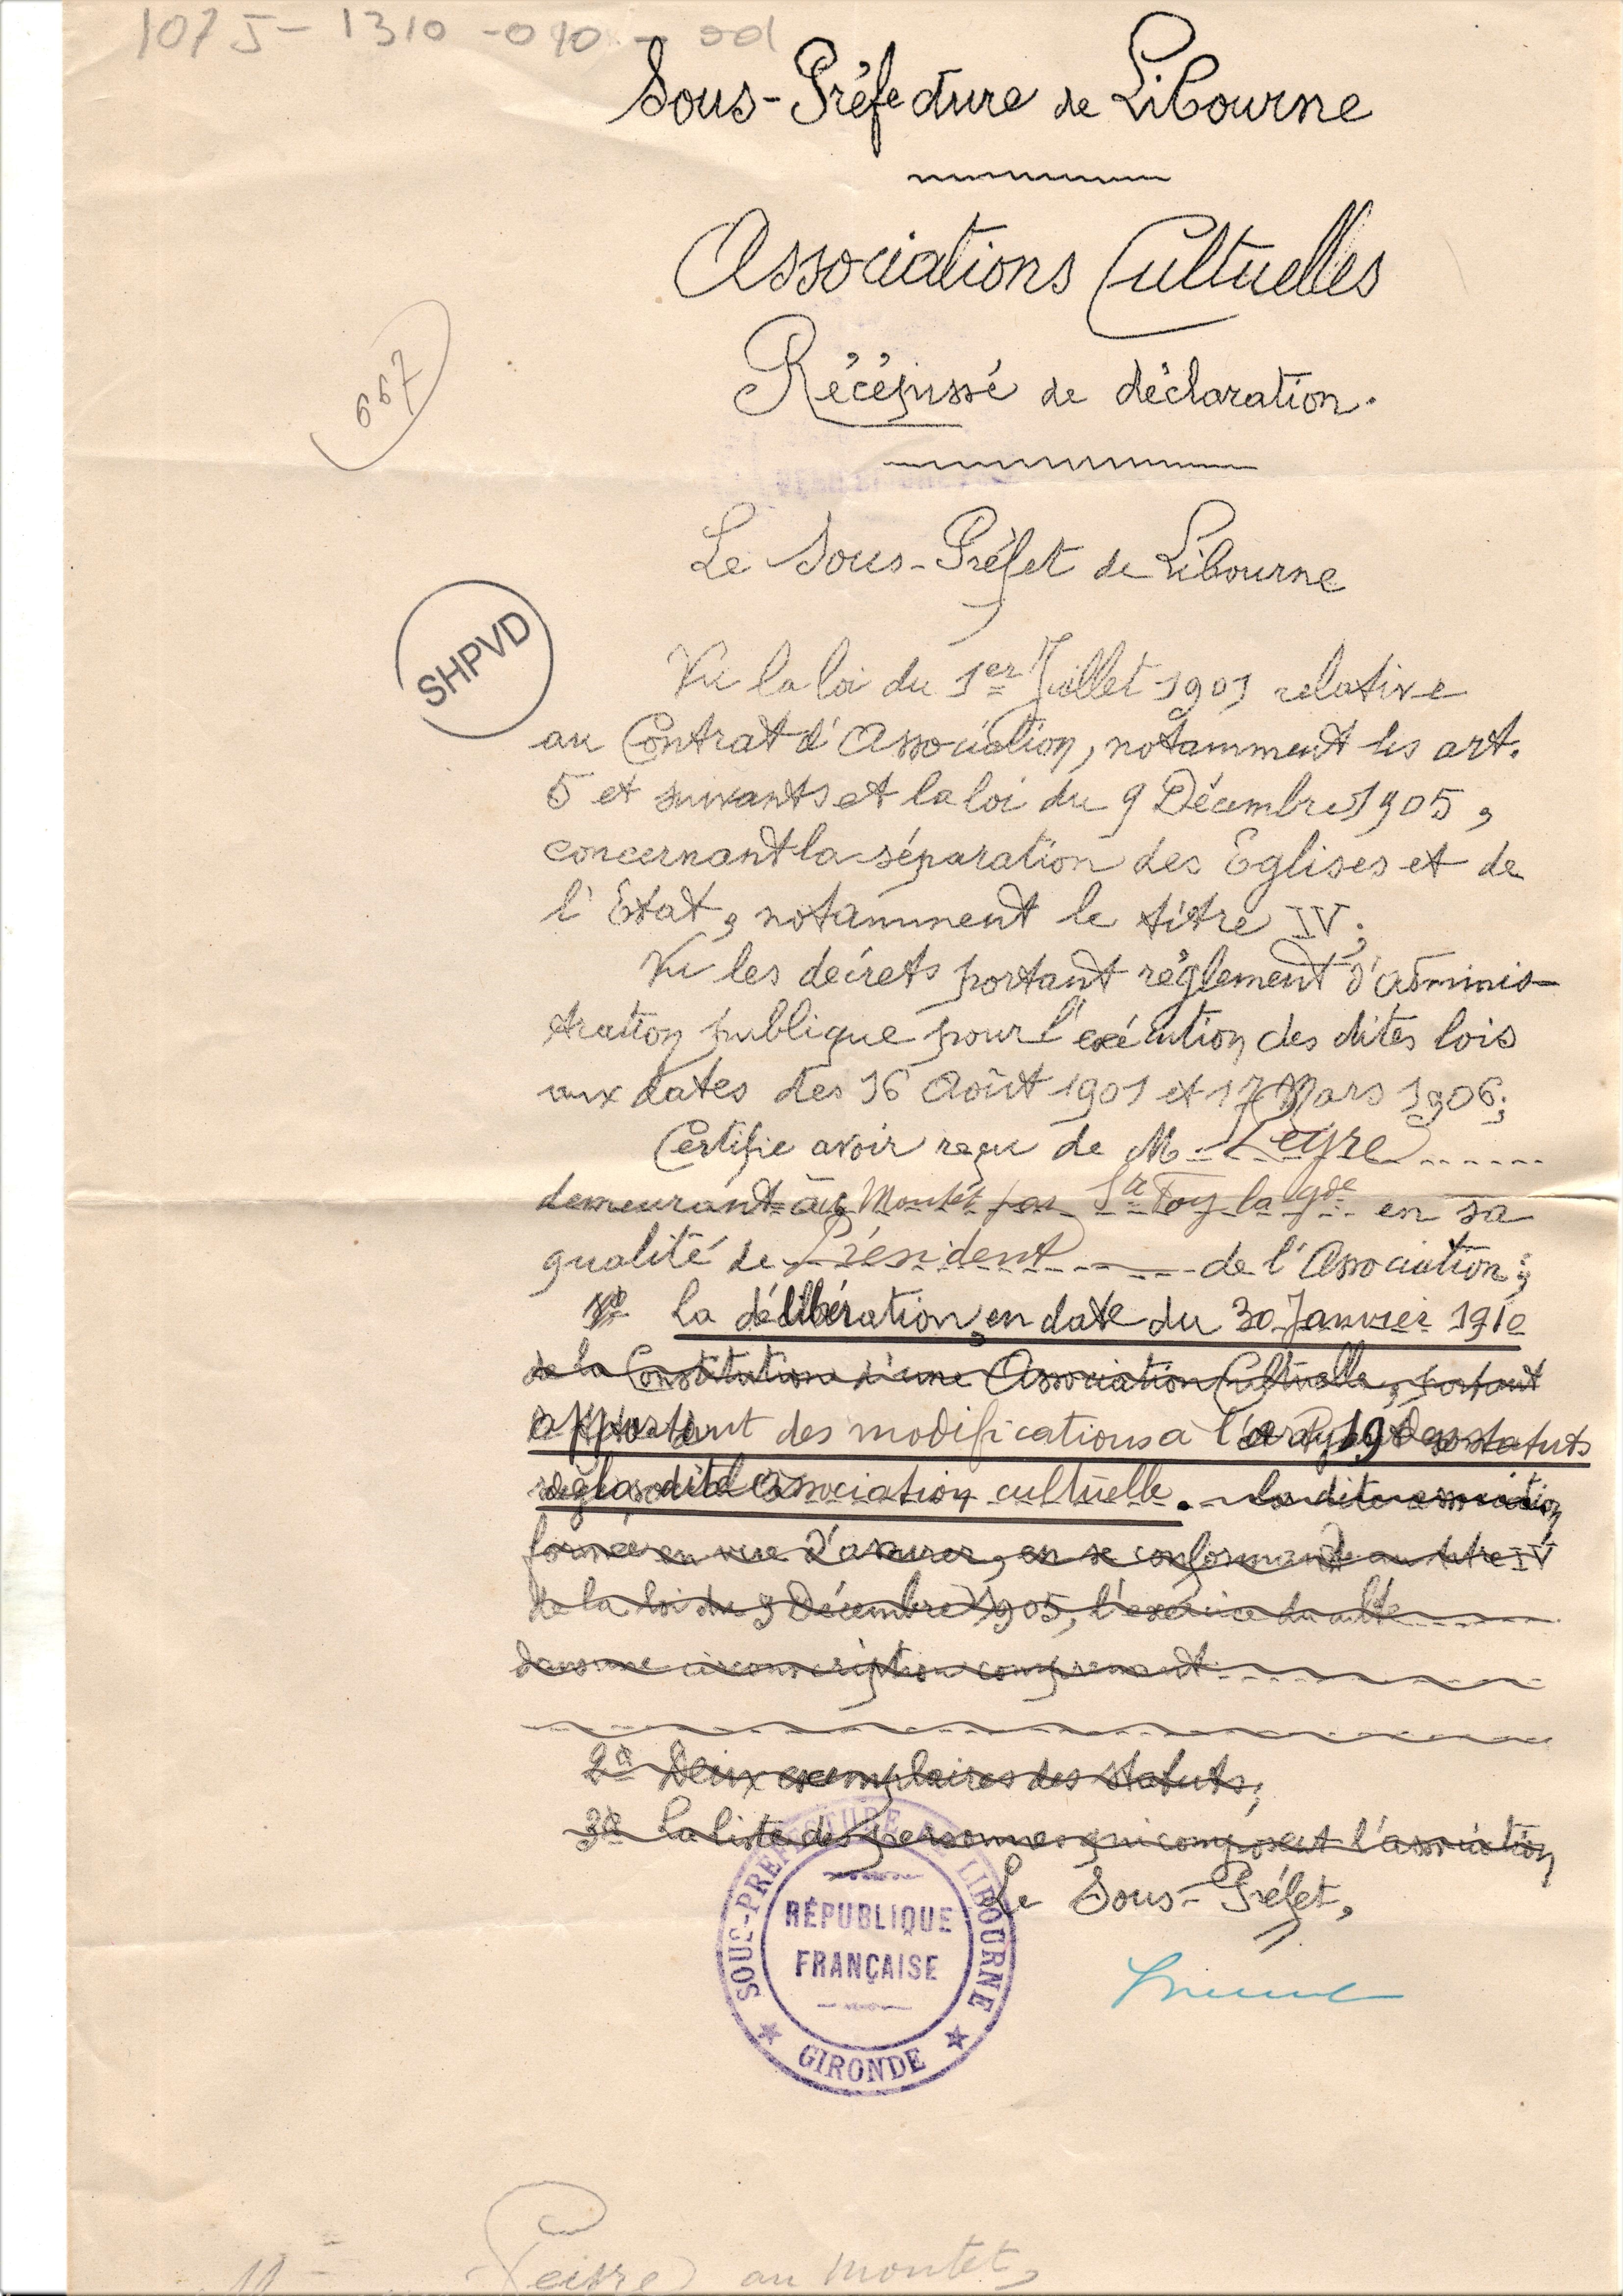 1075-1310-090-
Sous-Préfecture de Libourne
Associations Cultuelles
Récépissé de déclaration.
667
Le Sous-Préfet de Libourne
SHPVD
Vu la loi du 1er Juillet 1901 relative
au Contrat d'Association, notamment les art.
5 et suivants et la loi du 9 Décembre 1905,
concernant la séparation des Eglises et de
l'Etat, notamment le titre IV;
Vu les décrets portant règlement d'adminis-
tration publique pour l'exécution des dites lois
aux dates des 16 Août 1901 et 17 Mars 1906;
Certifie avoir reçu de M.
demeurant au Montet par Ste Foy la gde en sa
qualité de Président de l'Association;
1º la délibération, en date du 30 Janvier 1910
de la Constitution d'une Association Cultuelle, portant
apportant des modifications à l' 19 statuts
dite association cultuelle. la dite association
formée en vue d'assurer, en se conformant au titre IV
de la loi du 9 Décembre 1905, l'exercice du culte
dans une circonscription comprenant
2º Deux exemplaires des statuts;
3º La liste des personnes qui composent l'association
Le Sous-Préfet,
SOUS-PRÉFECTURE DE LIBOURNE
RÉPUBLIQUE
FRANÇAISE
GIRONDE
au Montet,